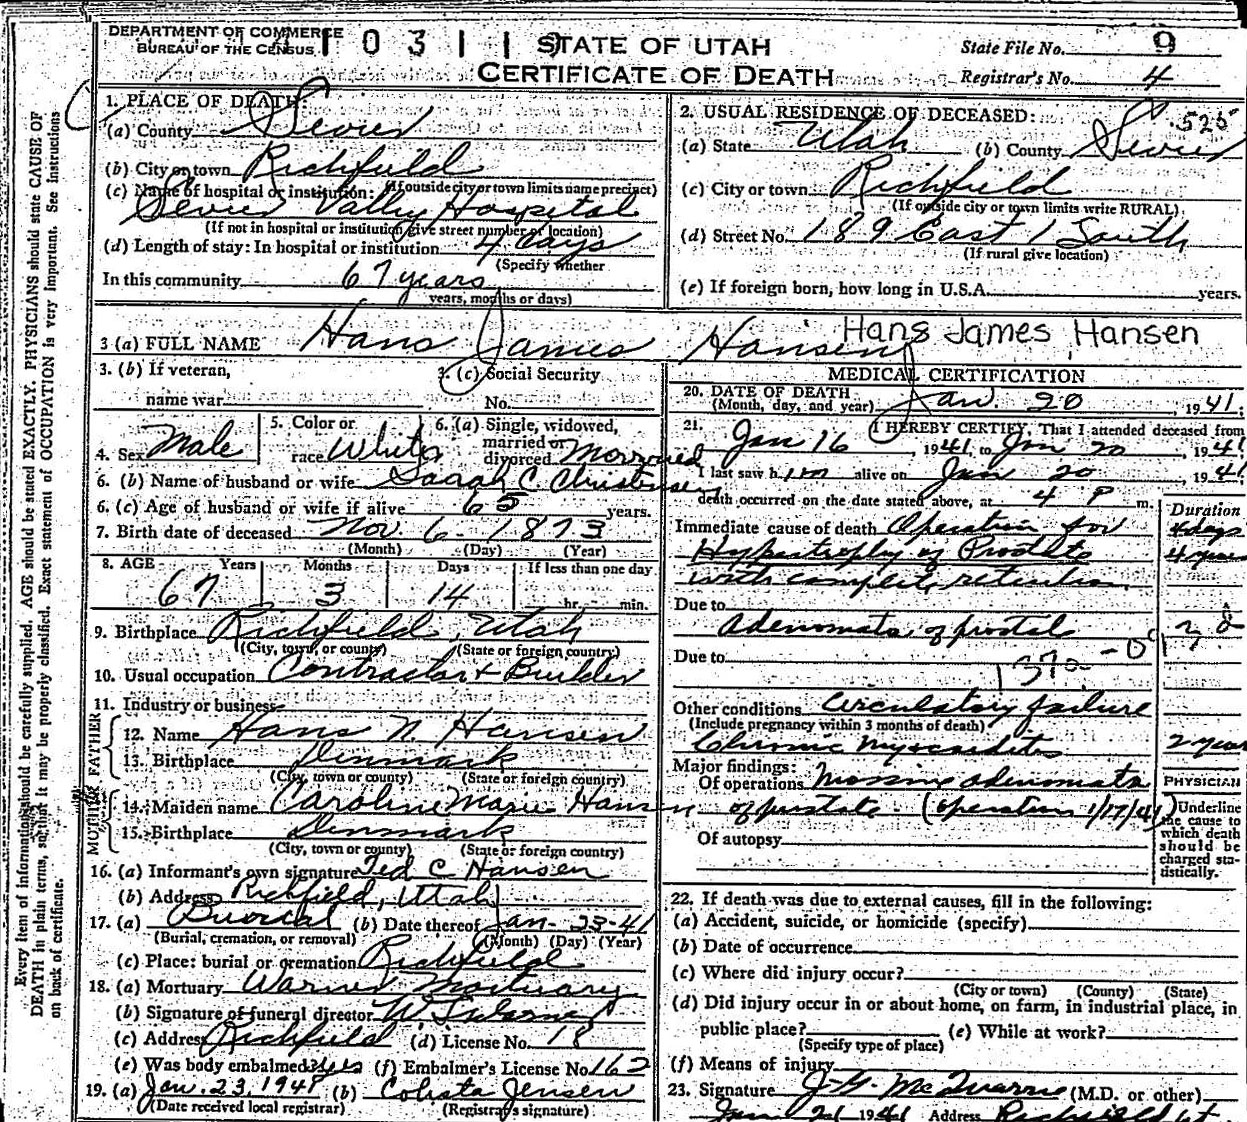 DEPARTMENT OF COMMERCE
BUREAU OF THE CENSUS
STATE OF UTAH
CERTIFICATE OF DEATH
State File No. 9
Registrar's No. 4
Every item of information should be carefully supplied. AGE should be stated EXACTLY. PHYSICIANS should state CAUSE OF
DEATH in plain terms, so that it may be properly classified. Exact statement of OCCUPATION is very important. See instructions
on back of certificate.
1. PLACE OF DEATH:
(a) County Sevier
(b) City or town Richfield
(If outside city or town limits name precinct)
(c) Name of hospital or institution:
Sevier Vally Hospital
(If not in hospital or institution give street number or location)
(d) Length of stay: In hospital or institution 4 days
(Specify whether
In this community 67 years
years, months or days)
2. USUAL RESIDENCE OF DECEASED: .525
(a) State Utah (b) County Sevier
(c) City or town Richfield
(If outside city or town limits write RURAL)
(d) Street No. 189 East 1 South
(If rural give location)
(e) If foreign born, how long in U.S.A. years.
3 (a) FULL NAME Hans James Hansen Hans James Hansen
3. (b) If veteran,
name war
3. (c) Social Security
No.
4. Sex Male
5. Color or
race White
6. (a) Single, widowed,
married or
divorced Married
6. (b) Name of husband or wife Sarah C Christensen
6. (c) Age of husband or wife if alive 65 years.
7. Birth date of deceased Nov. 6 - 1873
(Month) (Day) (Year)
8. AGE Years Months Days If less than one day
67 3 14 hr. min.
9. Birthplace Richfield, Utah
(City, town, or county) (State or foreign country)
10. Usual occupation Contractor + Builder
11. Industry or business
FATHER
12. Name Hans N Hansen
13. Birthplace Denmark
(City, town or county) (State or foreign country)
MOTHER
14. Maiden name Caroline Marie Hansen
15. Birthplace Denmark
(City, town or county) (State or foreign country)
16. (a) Informant's own signature Ted C Hansen
(b) Address Richfield, Utah
17. (a) Buereal (b) Date thereof Jan - 23 - 41
(Burial, cremation, or removal) (Month) (Day) (Year)
(c) Place: burial or cremation Richfield
18. (a) Mortuary Warner Mortuary
(b) Signature of funeral director
(c) Address Richfield (d) License No. 18
(e) Was body embalmed? yes (f) Embalmer's License No 162
19. (a) Jan. 23, 194 (b) Jensen
(Date received local registrar) (Registrar's signature)
MEDICAL CERTIFICATION
20. DATE OF DEATH
(Month, day, and year) Jan. 20, 1941
21. I HEREBY CERTIFY, That I attended deceased from
Jan 16, 1941, to Jan 20, 1941
I last saw him alive on Jan 20, 1941
death occurred on the date stated above, at 4 P m.
Duration
Immediate cause of death Operation for 4 days
Hypertrophy of Prostate 4 years
with complete retention
Due to
Adenomata of prostate
Due to
Other conditions Circulatory failure
(Include pregnancy within 3 months of death)
Chronic myocarditis 2 years
Major findings:
Of operations Massive adenomata
of prostate (operation 1/17/41)
Of autopsy
PHYSICIAN
Underline
the cause to
which death
should be
charged sta-
tistically.
22. If death was due to external causes, fill in the following:
(a) Accident, suicide, or homicide (specify)
(b) Date of occurrence
(c) Where did injury occur?
(City or town) (County) (State)
(d) Did injury occur in or about home, on farm, in industrial place, in
public place? (e) While at work?
(Specify type of place)
(f) Means of injury
23. Signature J. G. McQuarrie (M.D. or other)
Jan 21 1941 Address Richfield Ut.